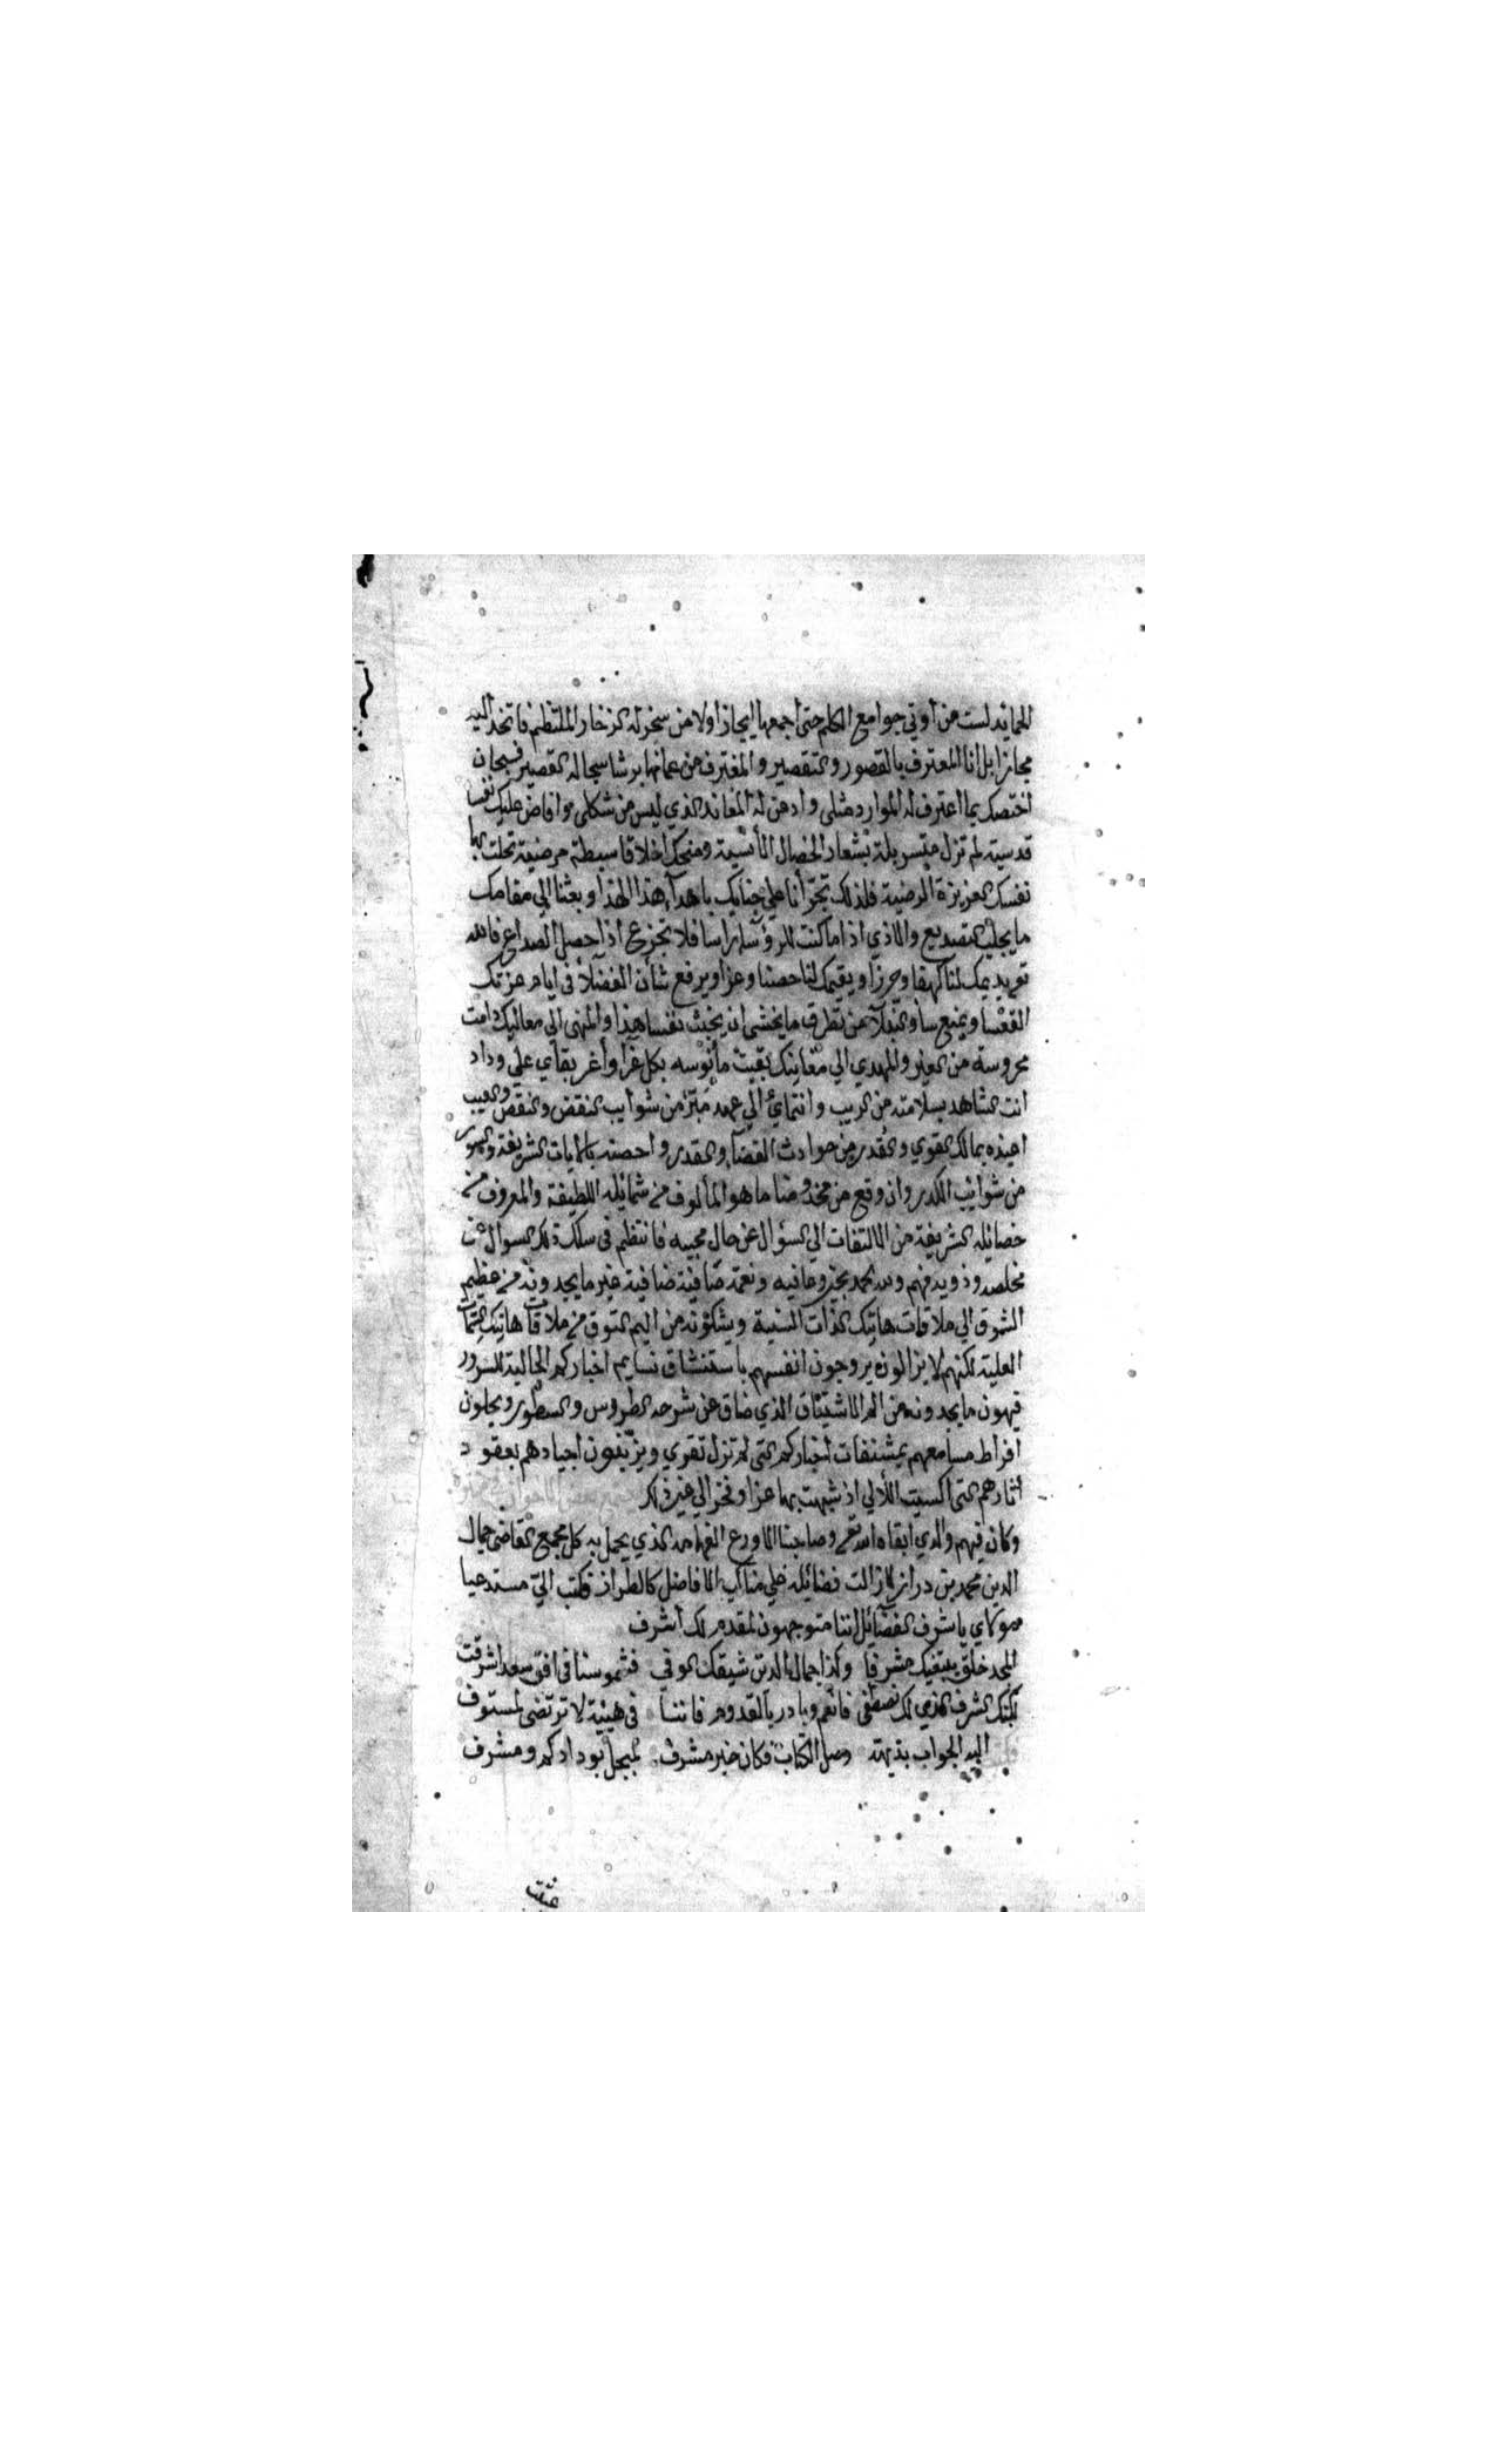 المحامد لست من أوتي جوامع الكلم حتى أجمعها ايجازا ولا من سخر له الزخار الملتطم فاتخذ اليه
مجازا بل انا المعترف بالقصور والتقصير والمغترف من عمانها برشا سجاله القصير فسبحان
اختصك بما اعترف له الموارد مثلي واذعن له المعاند الذي ليس من شكلي وافاض عليك نفسا
قدسية لم تزل متسربلة بشعار الخصال الأنسية ومنحك اخلاقا سبطة مرضية تحلت بها
نفسك العزيزة الرضية فلذلك تجرأنا على جنابك باهدآء هذا الهذا وبعثنا الي مقامك
ما يجلب التصديع والاذي اذا ما كنت للرؤسآء راسا فلا تجزع اذا حصل الصداع فالله
يديمك لنا كهفا وحرزا ويقيمك لنا حصنا وعزا ويرفع شأن الفضلاء في ايام عزتك
القعسا ويمنع ساوة النبلآء من تطرق ما يخشى ان يخبث نفسا هذا والمنهى الي معاليك دامت
محروسة من الغير والمهدي الي مغانيك بقيت مأنوسه بكل غرآء وأغر بقآي على وداد
انت الشاهد بسلامته من الريب وانتمائي الي عهد مبتز من شوائب النقض والنقص والعيب
اعيذه بمالك القوي والقدر من حوادث القضآء والقدر واحصنه بالايات الشريفة والسور
من شوائب الكدر وان وقع من مخدومنا ما هو المألوف من شمائله اللطيفة والمعروف من
خصائله الشريفة من الالتفات الي السؤال عن حال محبيه فانتظم في سلك ذلك السوال عن
مخلصه وذويه فهم ولله الحمد بخير وعافيه ونعمة صافية ضافية غير ما يجدونه من عظيم
الشوق الي ملاقات هاتيك الذات السنية ويشكونه من اليم التوق من ملاقات هاتيك السمات
العلية لكنهم لا يزالون يروحون انفسهم باستنشاق نسايم اخباركم الجالبة للسرور
فيهون ما يجدونه من الم الاشتياق الذي ضاق عن شرحه الطروس والسطور ويحلون
افراط مسامعهم بمشنفات اخباركم التي لم تزل تقري ويزينون اجيادهم بعقود
اثارهم التي اكسبت اللألي اذ شبهت بها عزا وفخرا الي غير ذلك
وكان فيهم والدي ابقاه الله تعالى وصاحبنا الاورع الفهامه الذي يجمل به كل مجمع القاضي جمال
الدين محمد بن دراز لازالت فضائله على مناكب الافاضل كالطراز فكتب الي مستدعيا
مولاي يا شرف الفضآئل اننا متوجهون لمقدم لك أشرف
للمجد خلق يبتغيك مشرفا وكذا جمال الدين شيقك الوفي فشموسنا في افق سعد اشرقت
لكنك الشرف الذي لك نصطفي فانعم وبادر بالقدوم فاننا في هيئة لا ترتضى لمستوف
اليه الجواب بديهة وصل الكتاب فكان خير مشرف لمبجل بودادكم ومشرف